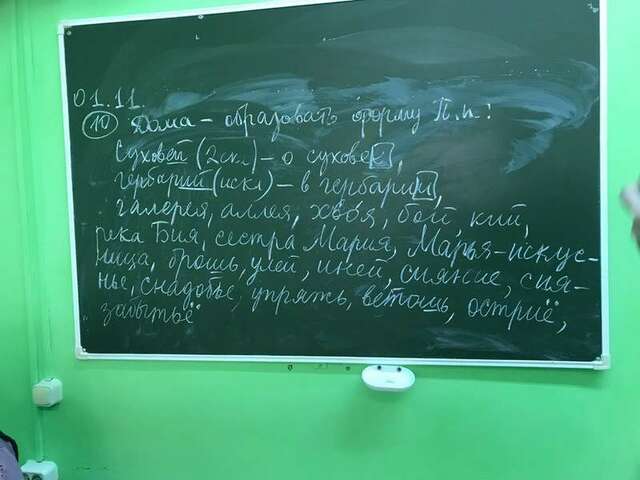 01.11.
(10) Дома - образовать форму П.п.:
Суховей (2скл) - о суховее,
гербарий (искл) - в гербарии,
галерея, аллея, хвоя, бой, кий,
река Бия, сестра Мария, Марья-искус-
ница, брошь, улей, иней, сияние, сия-
нье, снадобье, упряжь, ветошь, остриё,
забытьё